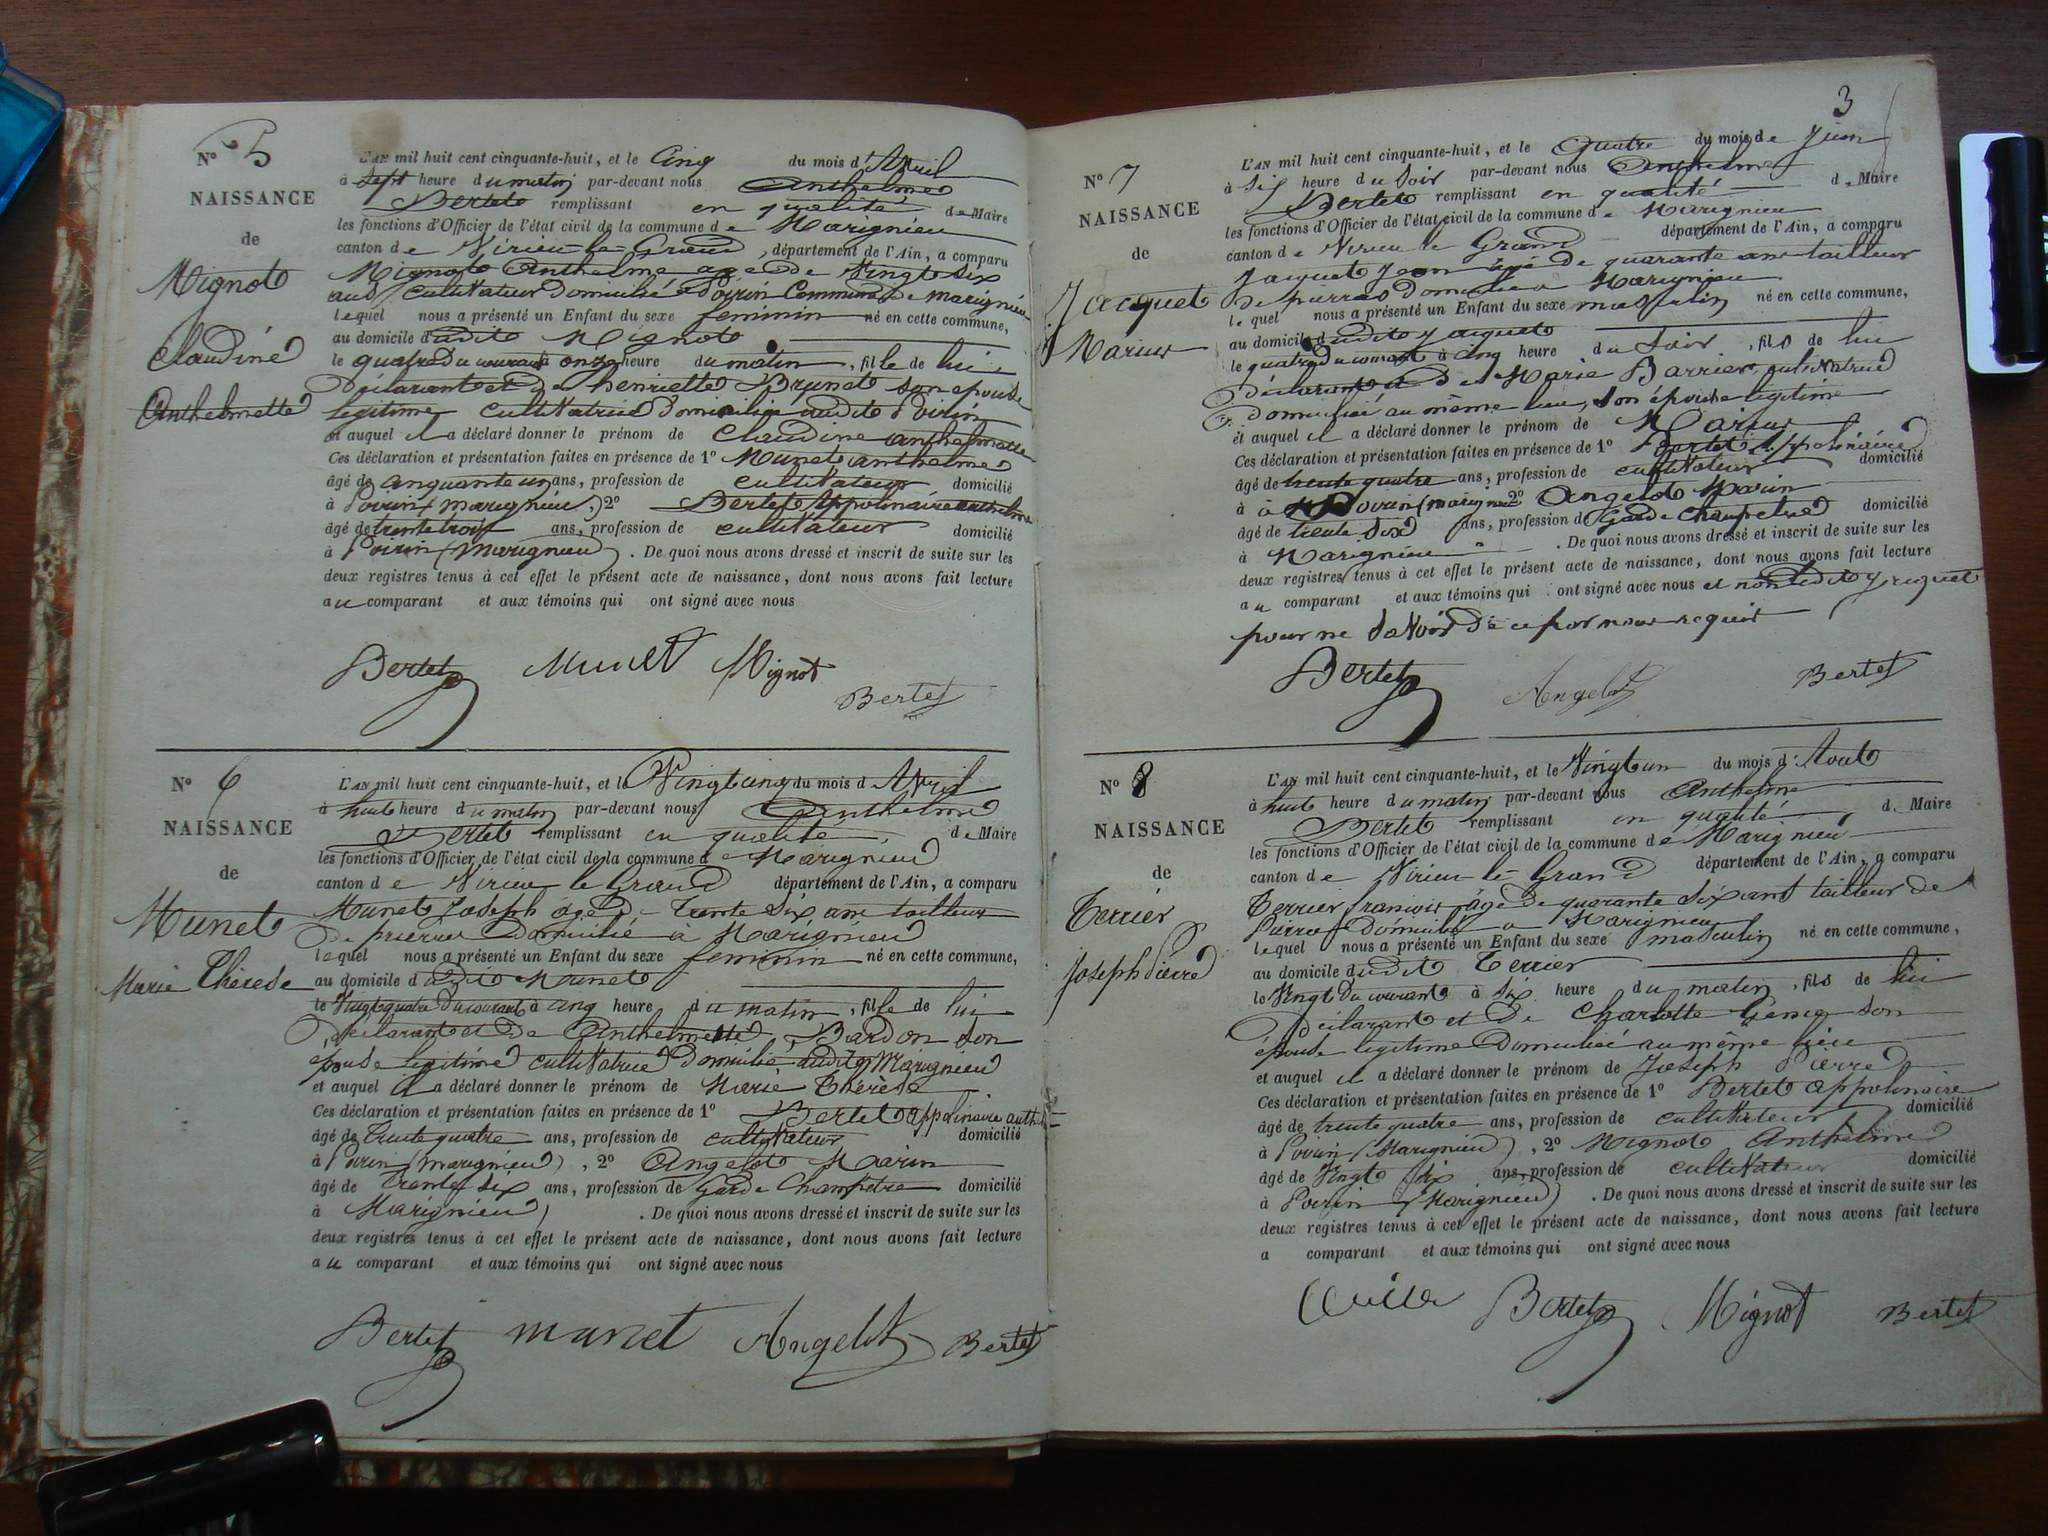 N° 5
NAISSANCE
de
Mignot
Claudine
Anthelmette
L'AN mil huit cent cinquante-huit, et le cinq du mois d'Avril
à sept heure du matin par-devant nous Anthelme
Bertet remplissant en qualité de Maire
les fonctions d'Officier de l'état civil de la commune de Marignieu
canton de Virieu-le-Grand, département de l'Ain, a comparu
Mignot Anthelme age de Vingt Six
ans cultivateur domicilié à Poirin Commune de marignieu
lequel nous a présenté un Enfant du sexe feminin né en cette commune,
au domicile dudit Mignot
le quatre du courant à onze heure du matin, fille de lui
déclarant et de henriette Brunet son epouse
legitime cultivatrice domiciliée audit Poirin
et auquel il a déclaré donner le prénom de Claudine anthelmette
Ces déclaration et présentation faites en présence de 1° Munet anthelme
âgé de cinquante un ans, profession de cultivateur domicilié
à Poirin (marignieu), 2° Bertet Appolinaire anthelme
âgé de trente trois ans, profession de cultivateur domicilié
à Poirin (Marignieu). De quoi nous avons dressé et inscrit de suite sur les
deux registres tenus à cet effet le présent acte de naissance, dont nous avons fait lecture
au comparant et aux témoins qui ont signé avec nous
Bertet Munet Mignot
Bertet
N° 6
NAISSANCE
de
Munet
Marie Thérèse
L'AN mil huit cent cinquante-huit, et le Vingt cinq du mois d Avril
à huit heure du matin par-devant nous Anthelme
Bertet remplissant en qualité de Maire
les fonctions d'Officier de l'état civil de la commune de Marignieu
canton de Virieu le Grand département de l'Ain, a comparu
Munet Joseph age de trente six ans tailleur
de pierres Domicilié à Marignieu
lequel nous a présenté un Enfant du sexe feminin né en cette commune,
au domicile dudit Munet
le Vingt quatre du courant à cinq heure du matin, fille de lui
déclarant et de Anthelmette Bardon son
epouse legitime cultivatrice domiciliée audit Marignieu
et auquel il a déclaré donner le prénom de Marie Thérèse
Ces déclaration et présentation faites en présence de 1° Bertet appolinaire anth
âgé de trente quatre ans, profession de cultivateur domicilié
à Poirin (marignieu), 2° Angelot Marin
âgé de Trente six ans, profession de Garde Champetre domicilié
à Marignieu. De quoi nous avons dressé et inscrit de suite sur les
deux registres tenus à cet effet le présent acte de naissance, dont nous avons fait lecture
au comparant et aux témoins qui ont signé avec nous
Bertet munet Angelot Bertet
3
N° 7
NAISSANCE
de
Jacquet
Marius
L'AN mil huit cent cinquante-huit, et le Quatre du mois de Juin
à six heure du soir par-devant nous Anthelme
Bertet remplissant en qualité de Maire
les fonctions d'Officier de l'état civil de la commune de Marignieu
canton de Virieu le Grand département de l'Ain, a comparu
Jacquet Jean âgé de quarante ans tailleur
de pierres domicilié à Marignieu
lequel nous a présenté un Enfant du sexe masculin né en cette commune,
au domicile dudit Jacquet
le quatre du courant à cinq heure du Soir, fils de lui
déclarant et de Marie Barrier, cultivatrice
domiciliée au même lieu, son épouse legitime
et auquel il a déclaré donner le prénom de Marius
Ces déclaration et présentation faites en présence de 1° Bertet Appolinaire
âgé de trente quatre ans, profession de cultivateur domicilié
à Poirin (marignieu 2° Angelot Marin
âgé de trente Six ans, profession de Garde champetre domicilié
à Marignieu. De quoi nous avons dressé et inscrit de suite sur les
deux registres tenus à cet effet le présent acte de naissance, dont nous avons fait lecture
au comparant et aux témoins qui ont signé avec nous et non ledit Jacquet
pour ne Savoir de ce par nous requis
Bertet Angelot Bertet
N° 8
NAISSANCE
de
Terrier
Joseph Pierre
L'AN mil huit cent cinquante-huit, et le Vingt un du mois d'Aout
à huit heure du matin par-devant nous Anthelme
Bertet remplissant en qualité d. Maire
les fonctions d'Officier de l'état civil de la commune de Marignieu
canton de Virieu-le-Grand département de l'Ain, a comparu
Terrier francois âgé de quarante Six ans tailleur de
Pierres Domicilié à Marignieu
lequel nous a présenté un Enfant du sexe masculin né en cette commune,
au domicile dudit Terrier
le Vingt du courant à Six heure du matin, fils de lui
déclarant et de Charlotte son
épouse legitime Domiciliée au même lieu
et auquel il a déclaré donner le prénom de Joseph Pierre
Ces déclaration et présentation faites en présence de 1° Bertet appolinaire
âgé de trente quatre ans, profession de cultivateur domicilié
à Poirin (Marignieu), 2° Mignot Anthelme
âgé de Vingt Six ans, profession de cultivateur domicilié
à Poirin (Marignieu). De quoi nous avons dressé et inscrit de suite sur les
deux registres tenus à cet effet le présent acte de naissance, dont nous avons fait lecture
a comparant et aux témoins qui ont signé avec nous
Bertet Mignot Bertet